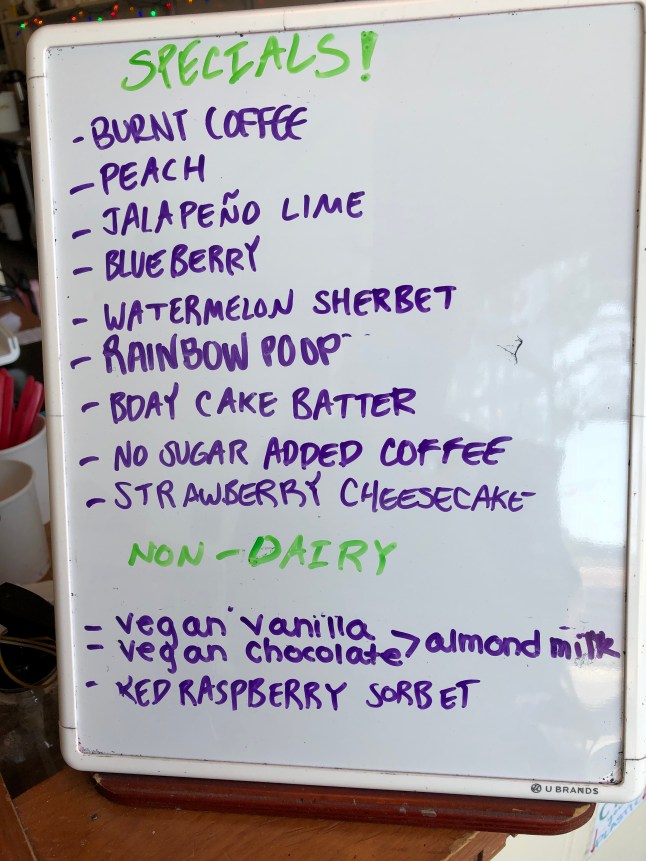 SPECIALS!
- BURNT COFFEE
- PEACH
- JALAPEÑO LIME
- BLUEBERRY
- WATERMELON SHERBET
- RAINBOW POOP
- BDAY CAKE BATTER
- NO SUGAR ADDED COFFEE
- STRAWBERRY CHEESECAKE
NON-DAIRY
- vegan vanilla
- vegan chocolate > almond milk
- RED RASPBERRY SORBET
U BRANDS